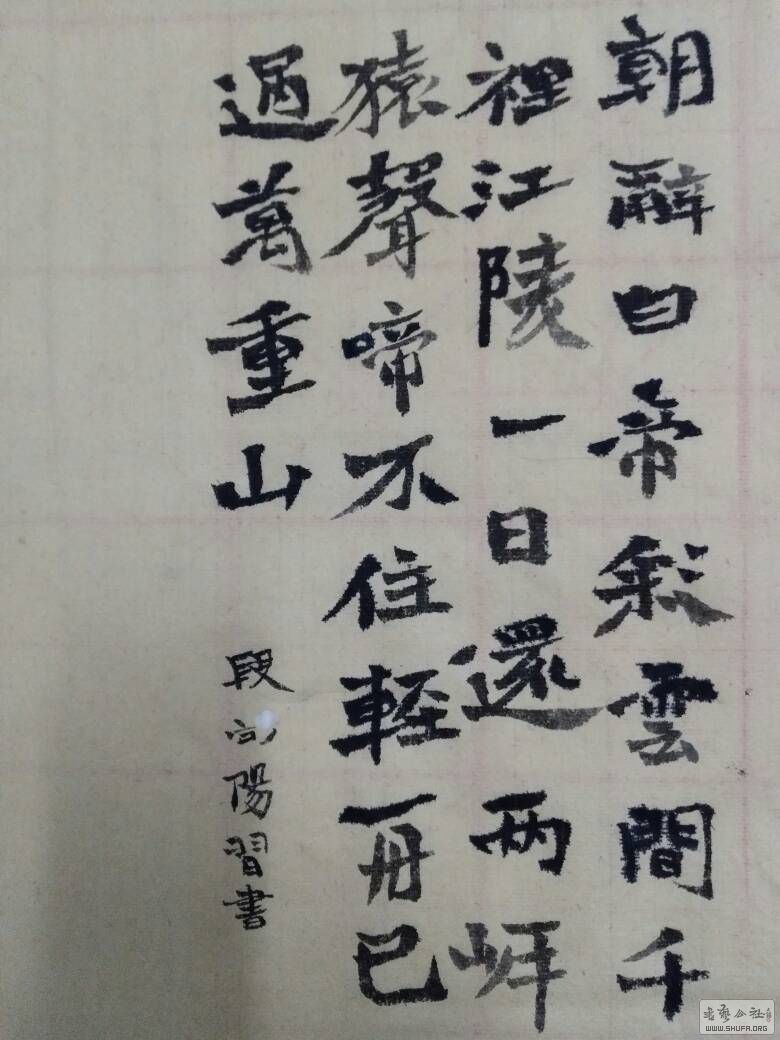 朝辭白帝彩雲間千
裡江陵一日還两岸
猿聲啼不住輕舟已
過萬重山
段向陽習書
书艺公社
WWW.SHUFA.ORG